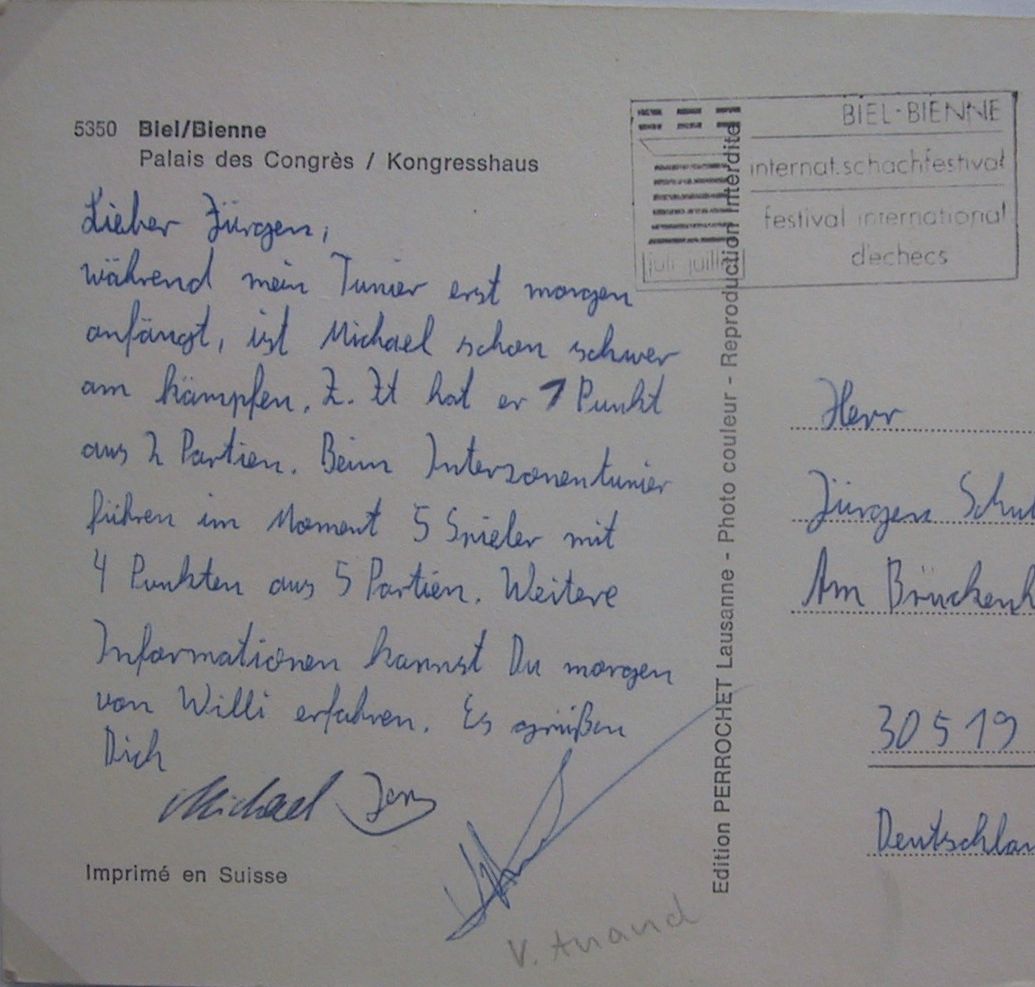 5350 Biel/Bienne
Palais des Congrès / Kongresshaus
Lieber Jürgen,
während mein Tunier erst morgen
anfängt, ist Michael schon schwer
am kämpfen. Z. Zt hat er 1 Punkt
aus 2 Partien. Beim Interzonentunier
führen im Moment 5 Spieler mit
4 Punkten aus 5 Partien. Weitere
Informationen kannst Du morgen
von Willi erfahren. Es grüßen
Dich
Michael Jens
V. Anand
Imprimé en Suisse
Edition PERROCHET Lausanne - Photo couleur - Reproduction interdite
BIEL-BIENNE
internat.schachfestival
festival international
d'echecs
juli-juillet
Herr
Jürgen
Am
30519